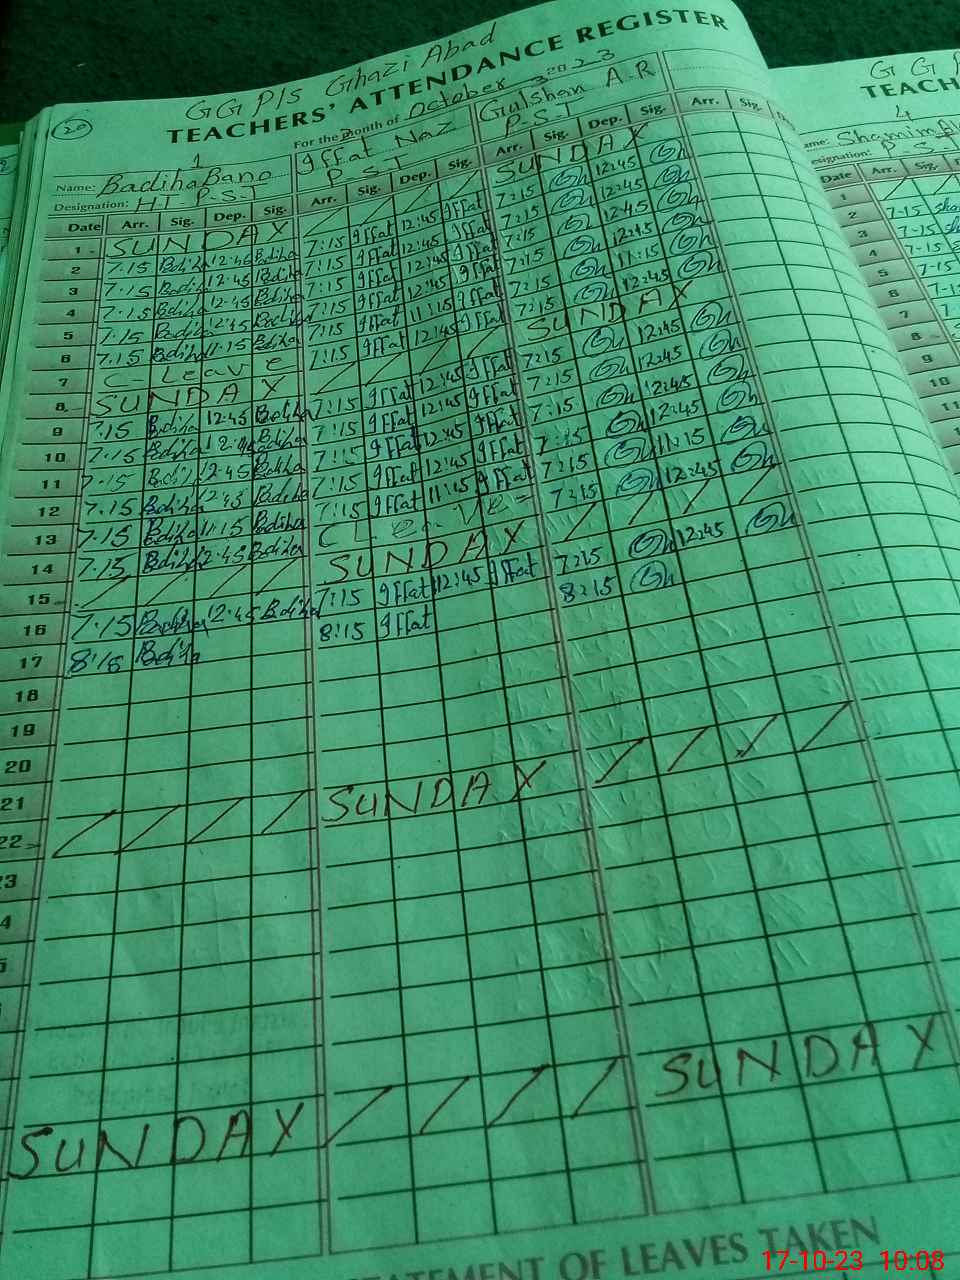 GGP/s Ghazi Abad
20
TEACHERS' ATTENDANCE REGISTER
For the month of October 2023
1
Name: Badiha Bano
Iffat Naz
Gulshan A.R
Designation: H-T P-S-T
P-S-T
P-S-T
Date Arr. Sig. Dep. Sig. Arr. Sig. Dep. Sig. Arr. Sig. Dep. Sig. Arr. Sig.
1 SUNDAY SUNDAY
2 7:15 Badiha 12:45 Badiha 7:15 Iffat 12:45 Iffat 7:15 Gh 12:45 Gh
3 7:15 Badiha 12:45 Badiha 7:15 Iffat 12:45 Iffat 7:15 Gh 12:45 Gh
4 7:15 Badiha 12:45 Badiha 7:15 Iffat 12:45 Iffat 7:15 Gh 12:45 Gh
5 7:15 Badiha 12:45 Badiha 7:15 Iffat 12:45 Iffat 7:15 Gh 12:45 Gh
6 7:15 Badiha 11:15 Badiha 7:15 Iffat 11:15 Iffat 7:15 Gh 11:15 Gh
7 C-Leave 7:15 Iffat 12:45 Iffat 7:15 Gh 12:45 Gh
8 SUNDAY SUNDAY
9 7:15 Badiha 12:45 Badiha 7:15 Iffat 12:45 Iffat 7:15 Gh 12:45 Gh
10 7:15 Badiha 12:45 Badiha 7:15 Iffat 12:45 Iffat 7:15 Gh 12:45 Gh
11 7:15 Badiha 12:45 Badiha 7:15 Iffat 12:45 Iffat 7:15 Gh 12:45 Gh
12 7:15 Badiha 12:45 Badiha 7:15 Iffat 12:45 Iffat 7:15 Gh 12:45 Gh
13 7:15 Badiha 11:15 Badiha 7:15 Iffat 11:15 Iffat 7:15 Gh 11:15 Gh
14 7:15 Badiha 12:45 Badiha C Leave 7:15 Gh 12:45 Gh
15 SUNDAY
16 7:15 Badiha 12:45 Badiha 7:15 Iffat 12:45 Iffat 7:15 Gh 12:45 Gh
17 8:15 Badiha 8:15 Iffat 8:15 Gh
18
19
20
21
22 SUNDAY
3
4
5
SUNDAY SUNDAY
STATEMENT OF LEAVES TAKEN
GG P
TEACH
4
ame: Shamim
esignation: P-S-
Date Arr. Sig.
1
2 7-15
3 7-15
4 7-15
5 7-15
6
7
8
9
10
11
17-10-23 10:08